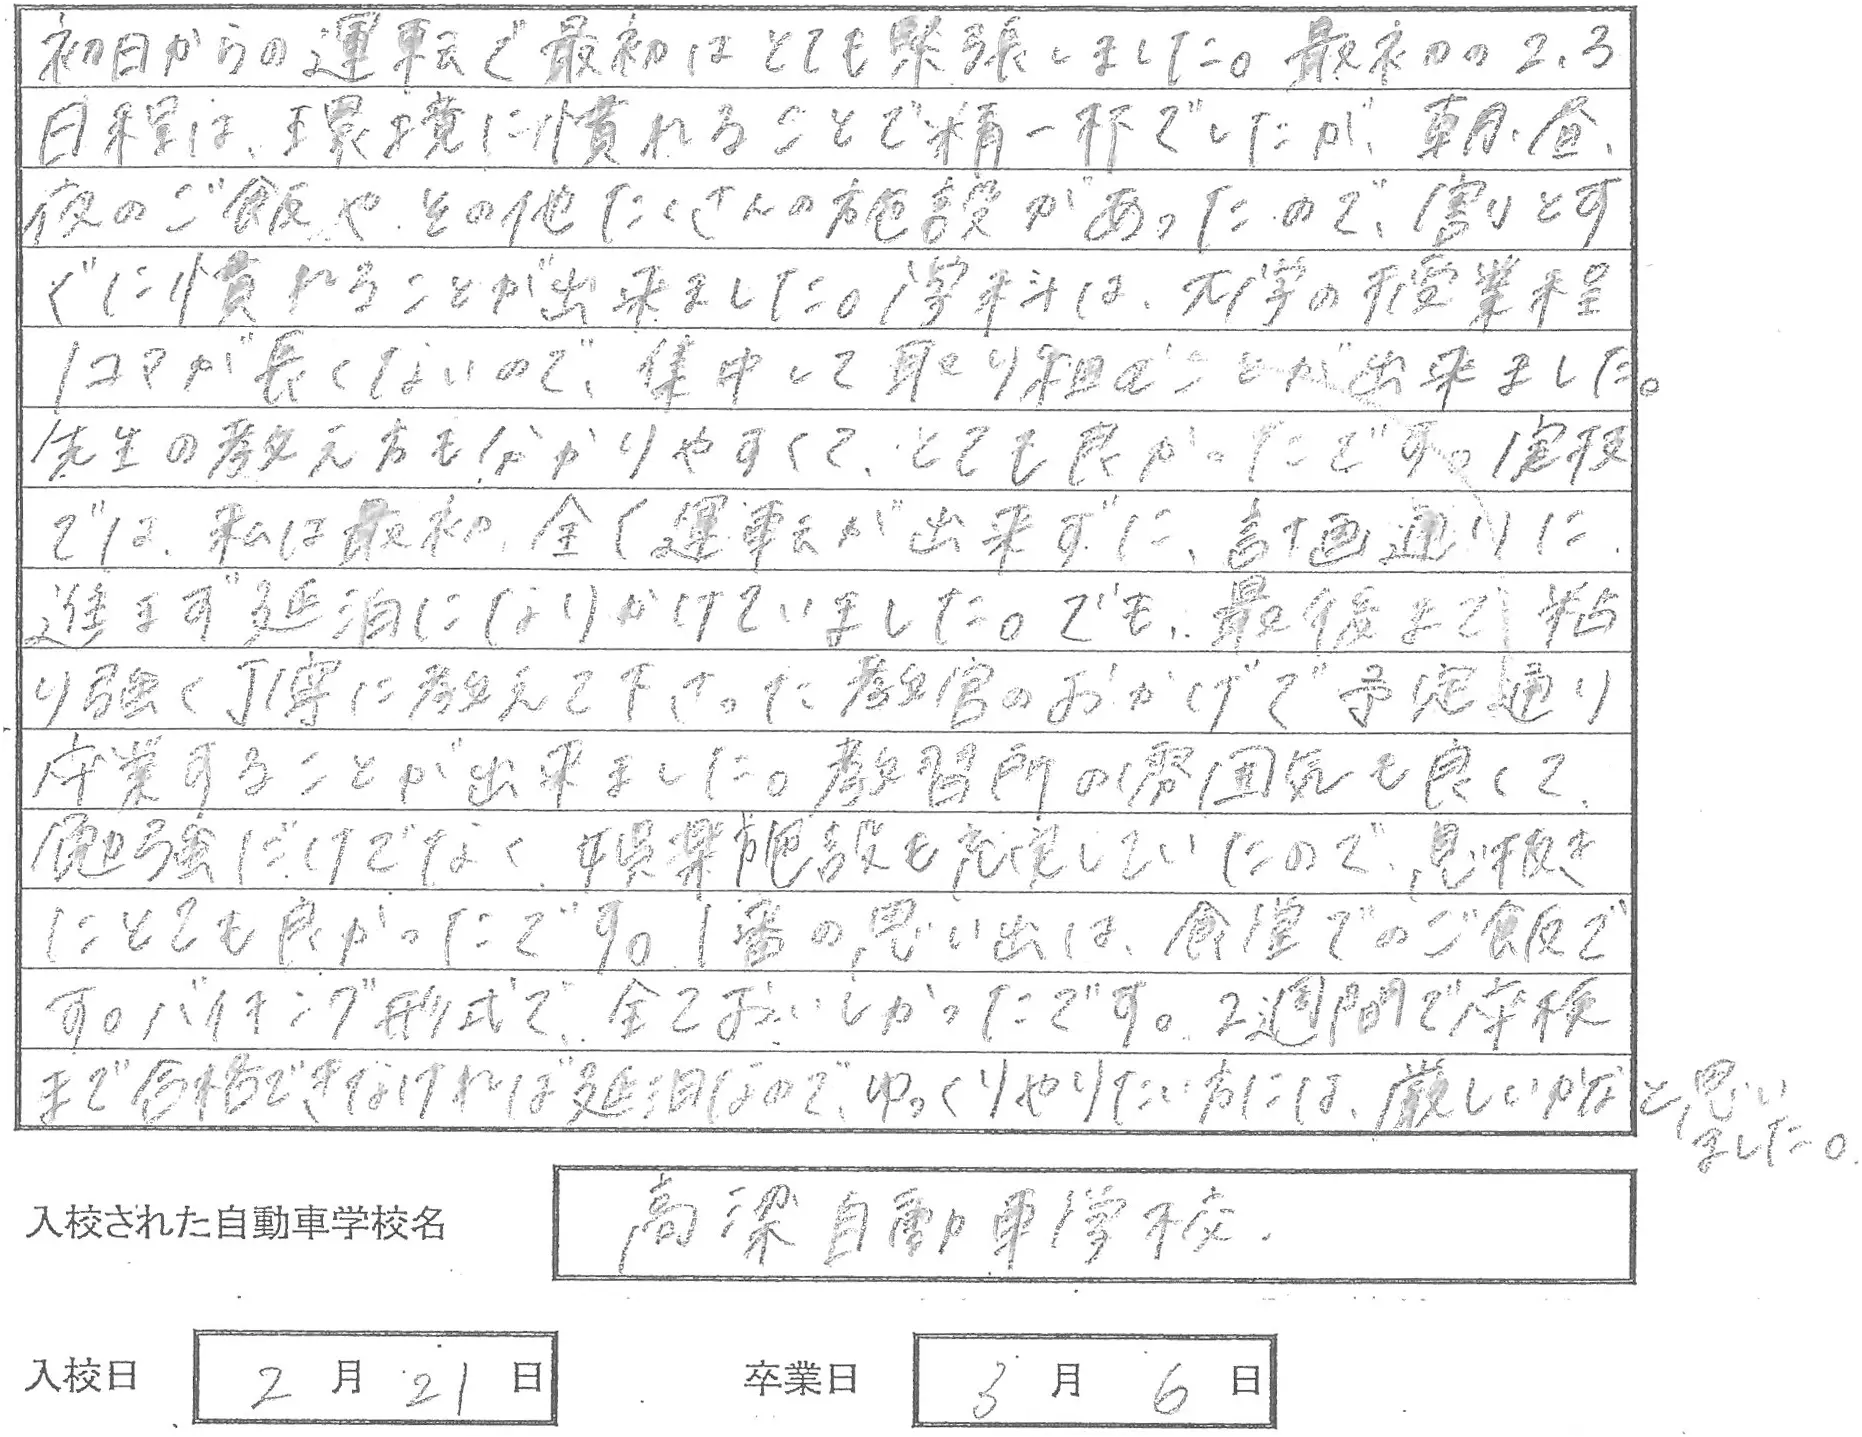 初日からの運転で最初はとても緊張しました。最初の2、3
日程は、環境に慣れることで精一杯でしたが、朝、昼、
夜のご飯や、その他たくさんの施設があったので、割とす
ぐに慣れることが出来ました。学科は、大学の授業程
1コマが長くないので、集中して取り組むことが出来ました。
先生の教え方も分かりやすくて、とても良かったです。実技
では、私は最初、全く運転が出来ずに、計画通りに
進まず延泊になりかけていました。でも、最後まで粘
り強く丁寧に教えて下さった教官のおかげで予定通り
卒業することが出来ました。教習所の雰囲気も良くて、
勉強だけでなく、娯楽施設も充実していたので、息抜き
にとても良かったです。1番の思い出は、食堂でのご飯で
す。バイキング形式で、全ておいしかったです。2週間で卒検
まで合格できなければ延泊なので、ゆっくりやりたい方には、厳しいかなと思い
ました。
入校された自動車学校名 高梁自動車学校.
入校日 2月21日 卒業日 3月6日